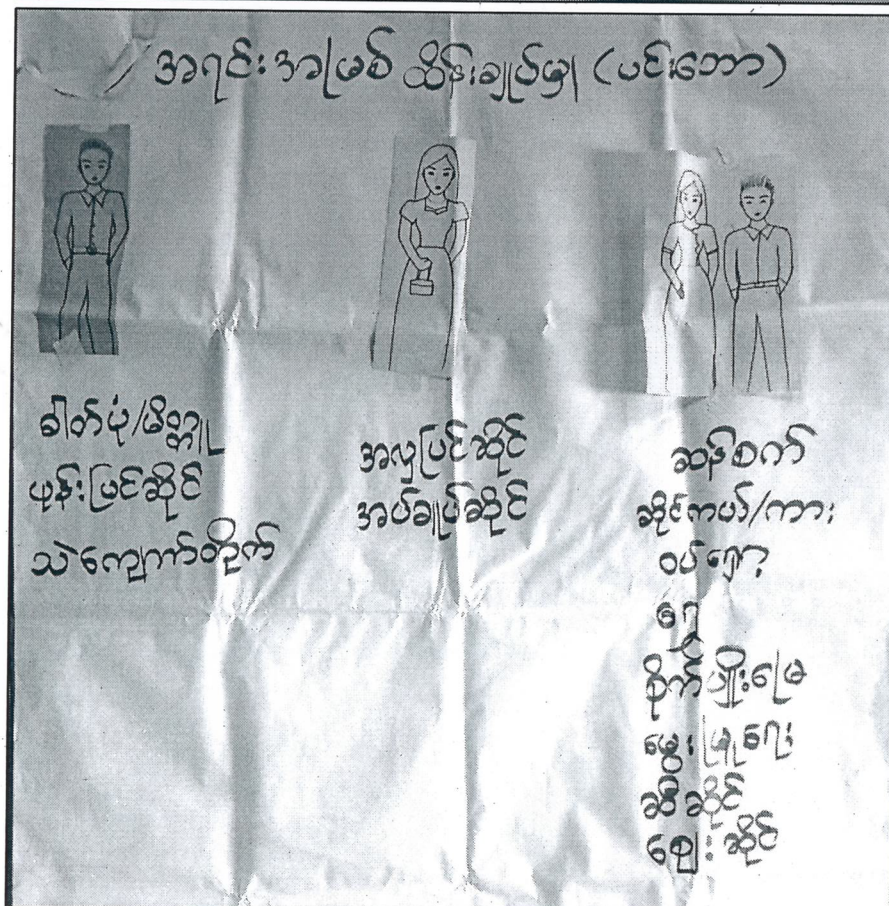 အရင်းအမြစ် ထိန်းချုပ်မှု (ပင်းဘော)
ဓါတ်ပုံ/မိတ္တူ
ဖုန်းပြင်ဆိုင်
သဲကျောက်တိုက်
အလှပြင်ဆိုင်
အပ်ချုပ်ဆိုင်
ဆန်စက်
ဆိုင်ကယ်/ကား
ဝပ်ရှော့
ရွှေ
စိုက်ပျိုးမြေ
မွေးမြူရေး
ဆီဆိုင်
ဈေးဆိုင်